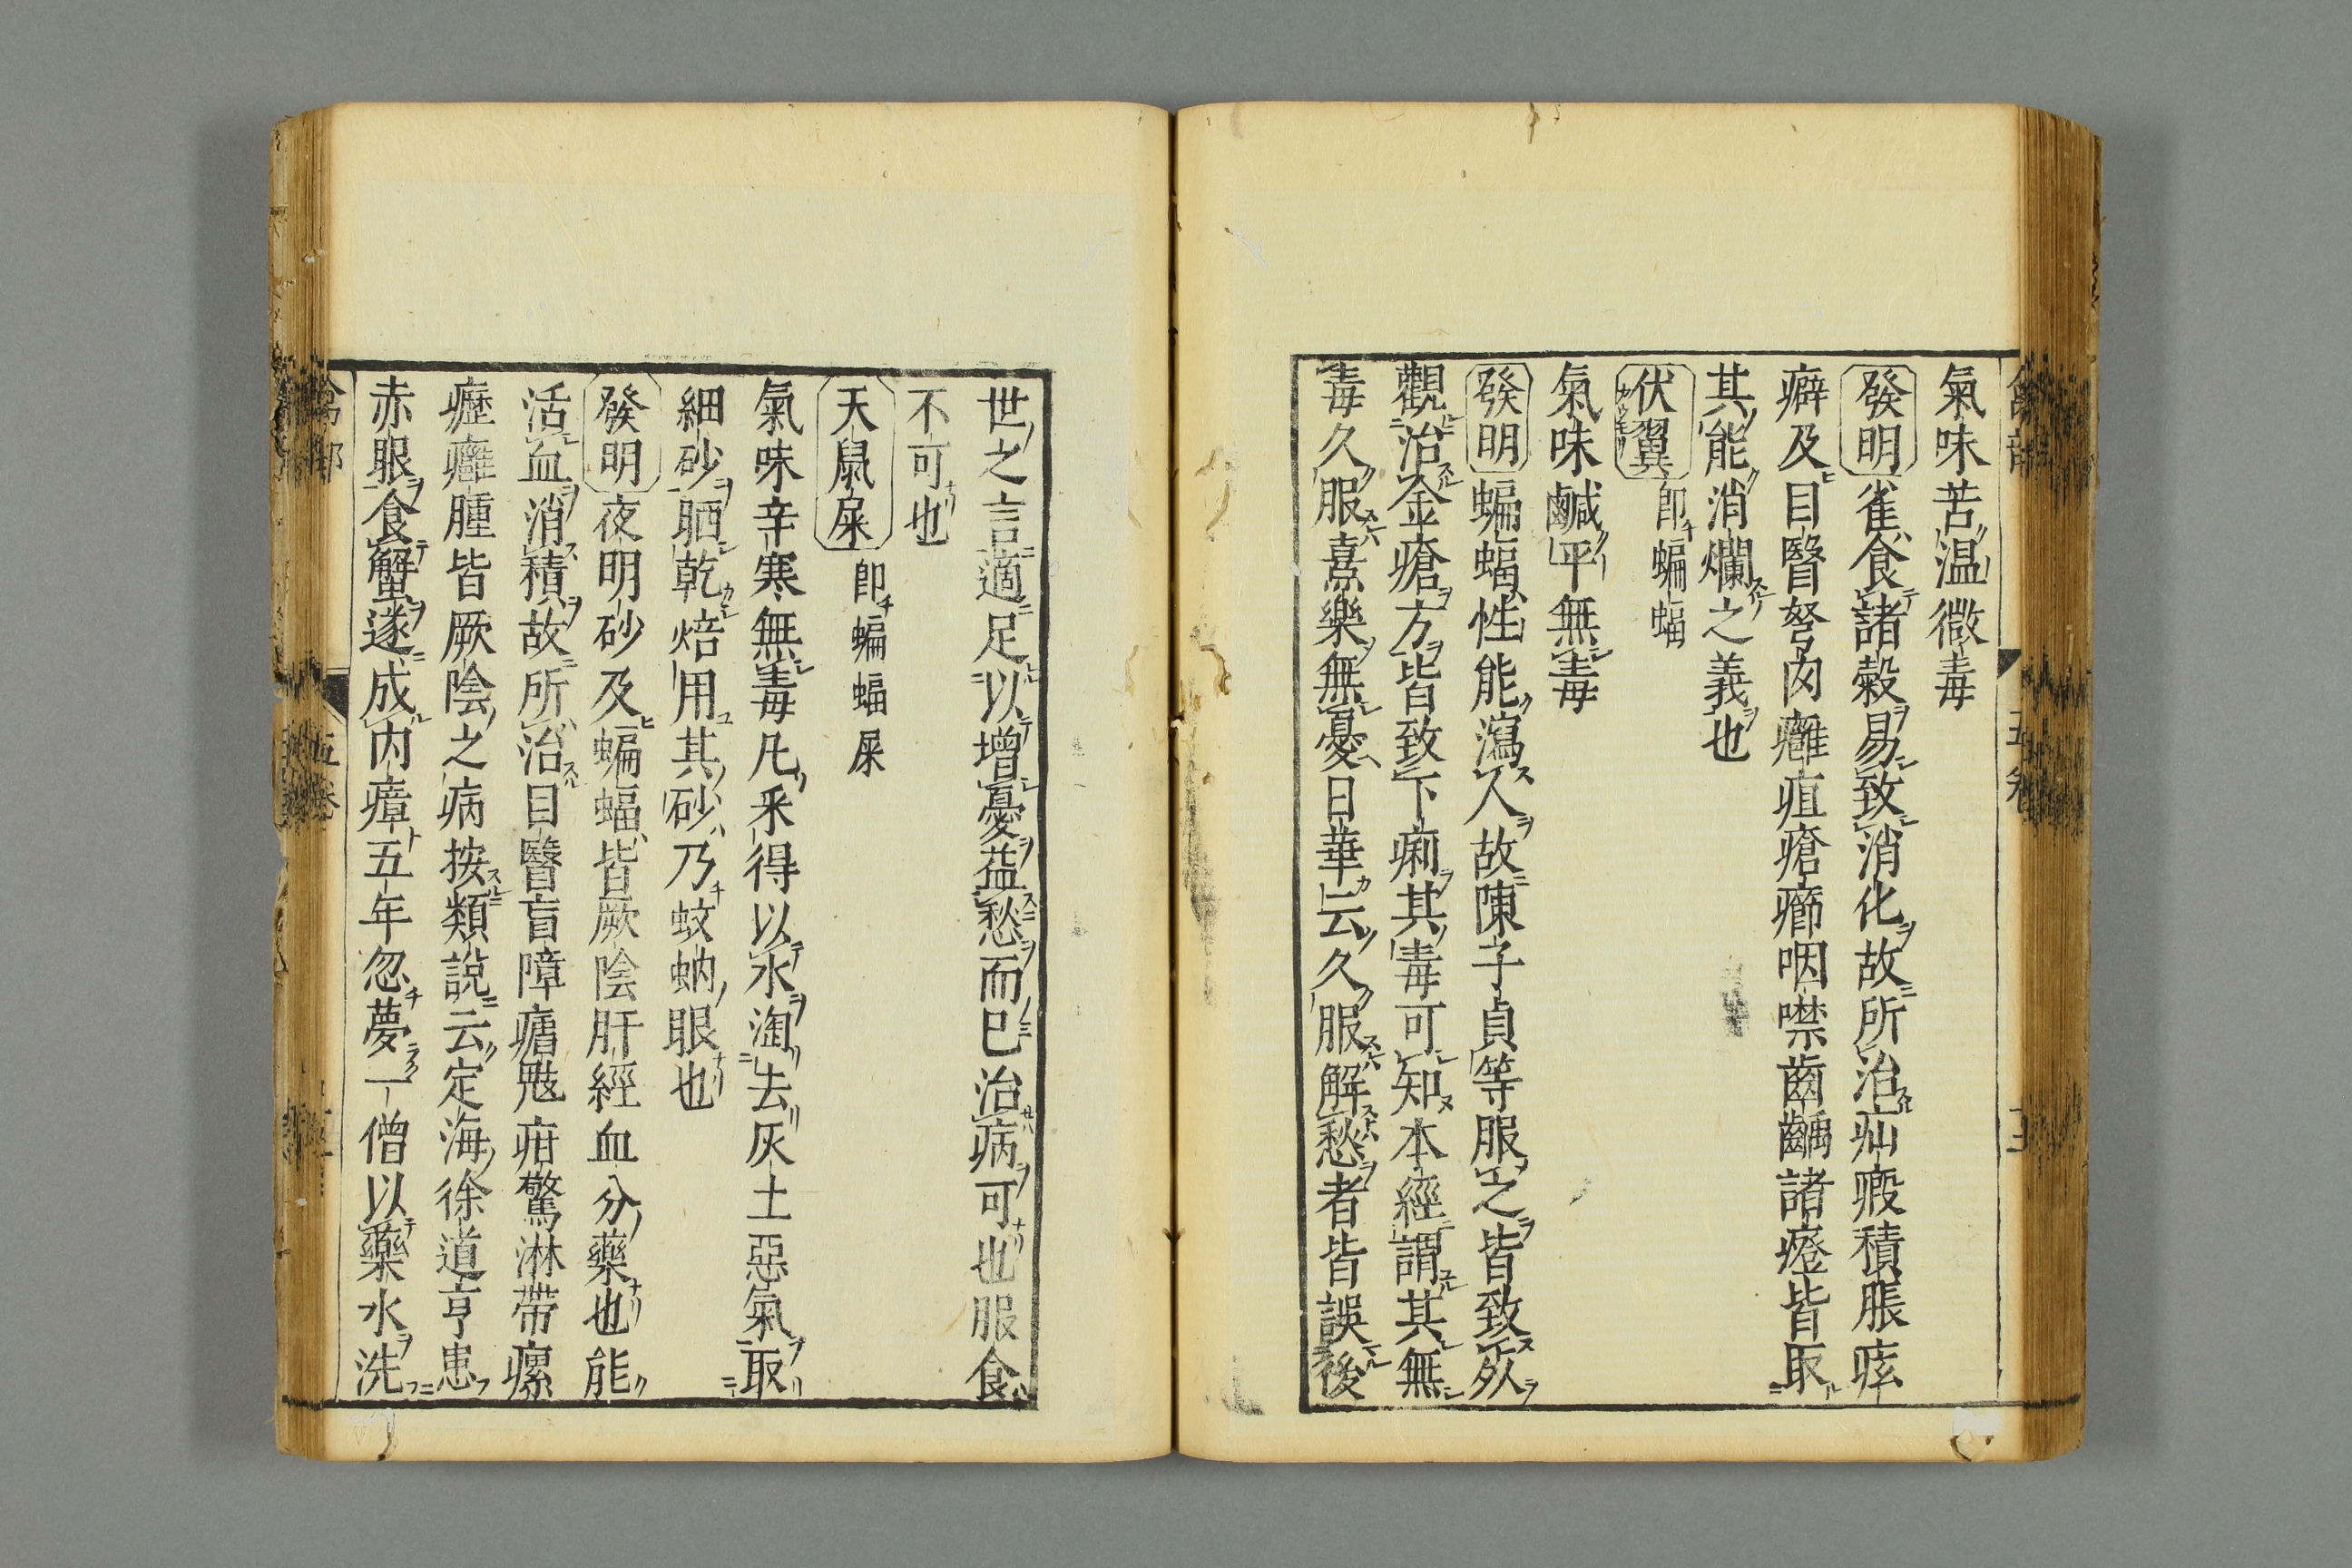 氣味苦温微毒
發明雀食諸穀易致消化故所治疝瘕積脹痃
癖及目瞖努肉癰疽瘡癤咽噤齒齲諸癥皆取
其能消爛之義也
伏翼即蝙蝠
氣味鹹平無毒
發明蝙蝠性能瀉人故陳子貞等服之皆致死
觀治金瘡方皆致下痢其毒可知本經謂其無
毒久服熹樂無憂日華云久服解愁者皆誤後
世之言適足以增憂益愁而已治病可也服食
不可也
天鼠屎即蝙蝠屎
氣味辛寒無毒凡采得以水淘去灰土惡氣取
細砂晒乾焙用其砂乃蚊蚋眼也
發明夜明砂及蝙蝠皆厥陰肝經血分藥也能
活血消積故所治目瞖盲障瘧鬾疳驚淋帶瘰
癧癰腫皆厥陰之病按類說云定海徐道亨患
赤眼食蟹遂成内瘴五年忽夢一僧以藥水洗
禽部 五卷